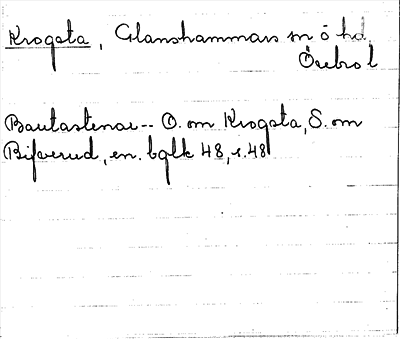 Krogata, Glanshammars sn o hd.
Örebro l
Bautastenar -- O. om Krogata, S. om
Bifverud, en. bglk 48, s. 48